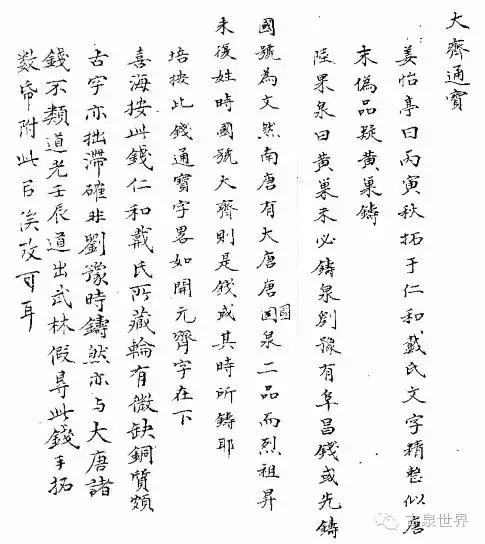 大齊通寶
姜怡亭曰丙寅秋拓于仁和戴氏文字精整似唐
末偽品疑黃巢鑄
陸果泉曰黃巢未必鑄泉劉豫有阜昌錢或先鑄
國號為文然南唐有大唐唐囯泉二品而烈祖昇
國
未復姓時國號大齊則是錢或其時所鑄耶
培按此錢通寶字畧如開元齊字在下
喜海按此錢仁和戴氏所藏輪有微缺銅質頗
古字亦拙滯確非劉豫時鑄然亦與大唐諸
錢不類道光壬辰道出武林假㝵此錢手拓
数帋附此后俟攷可耳
古泉世界